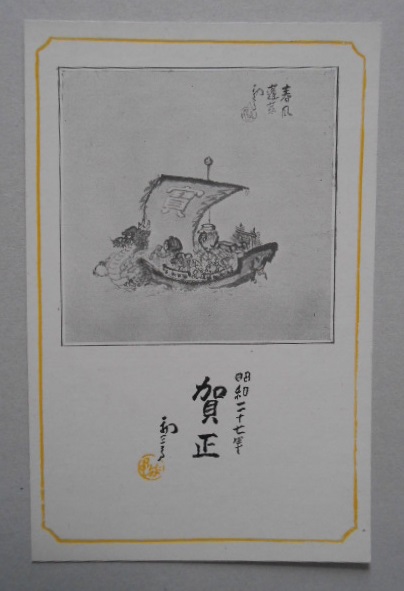 春風
蓬莱
寳
昭和二十七年
賀正